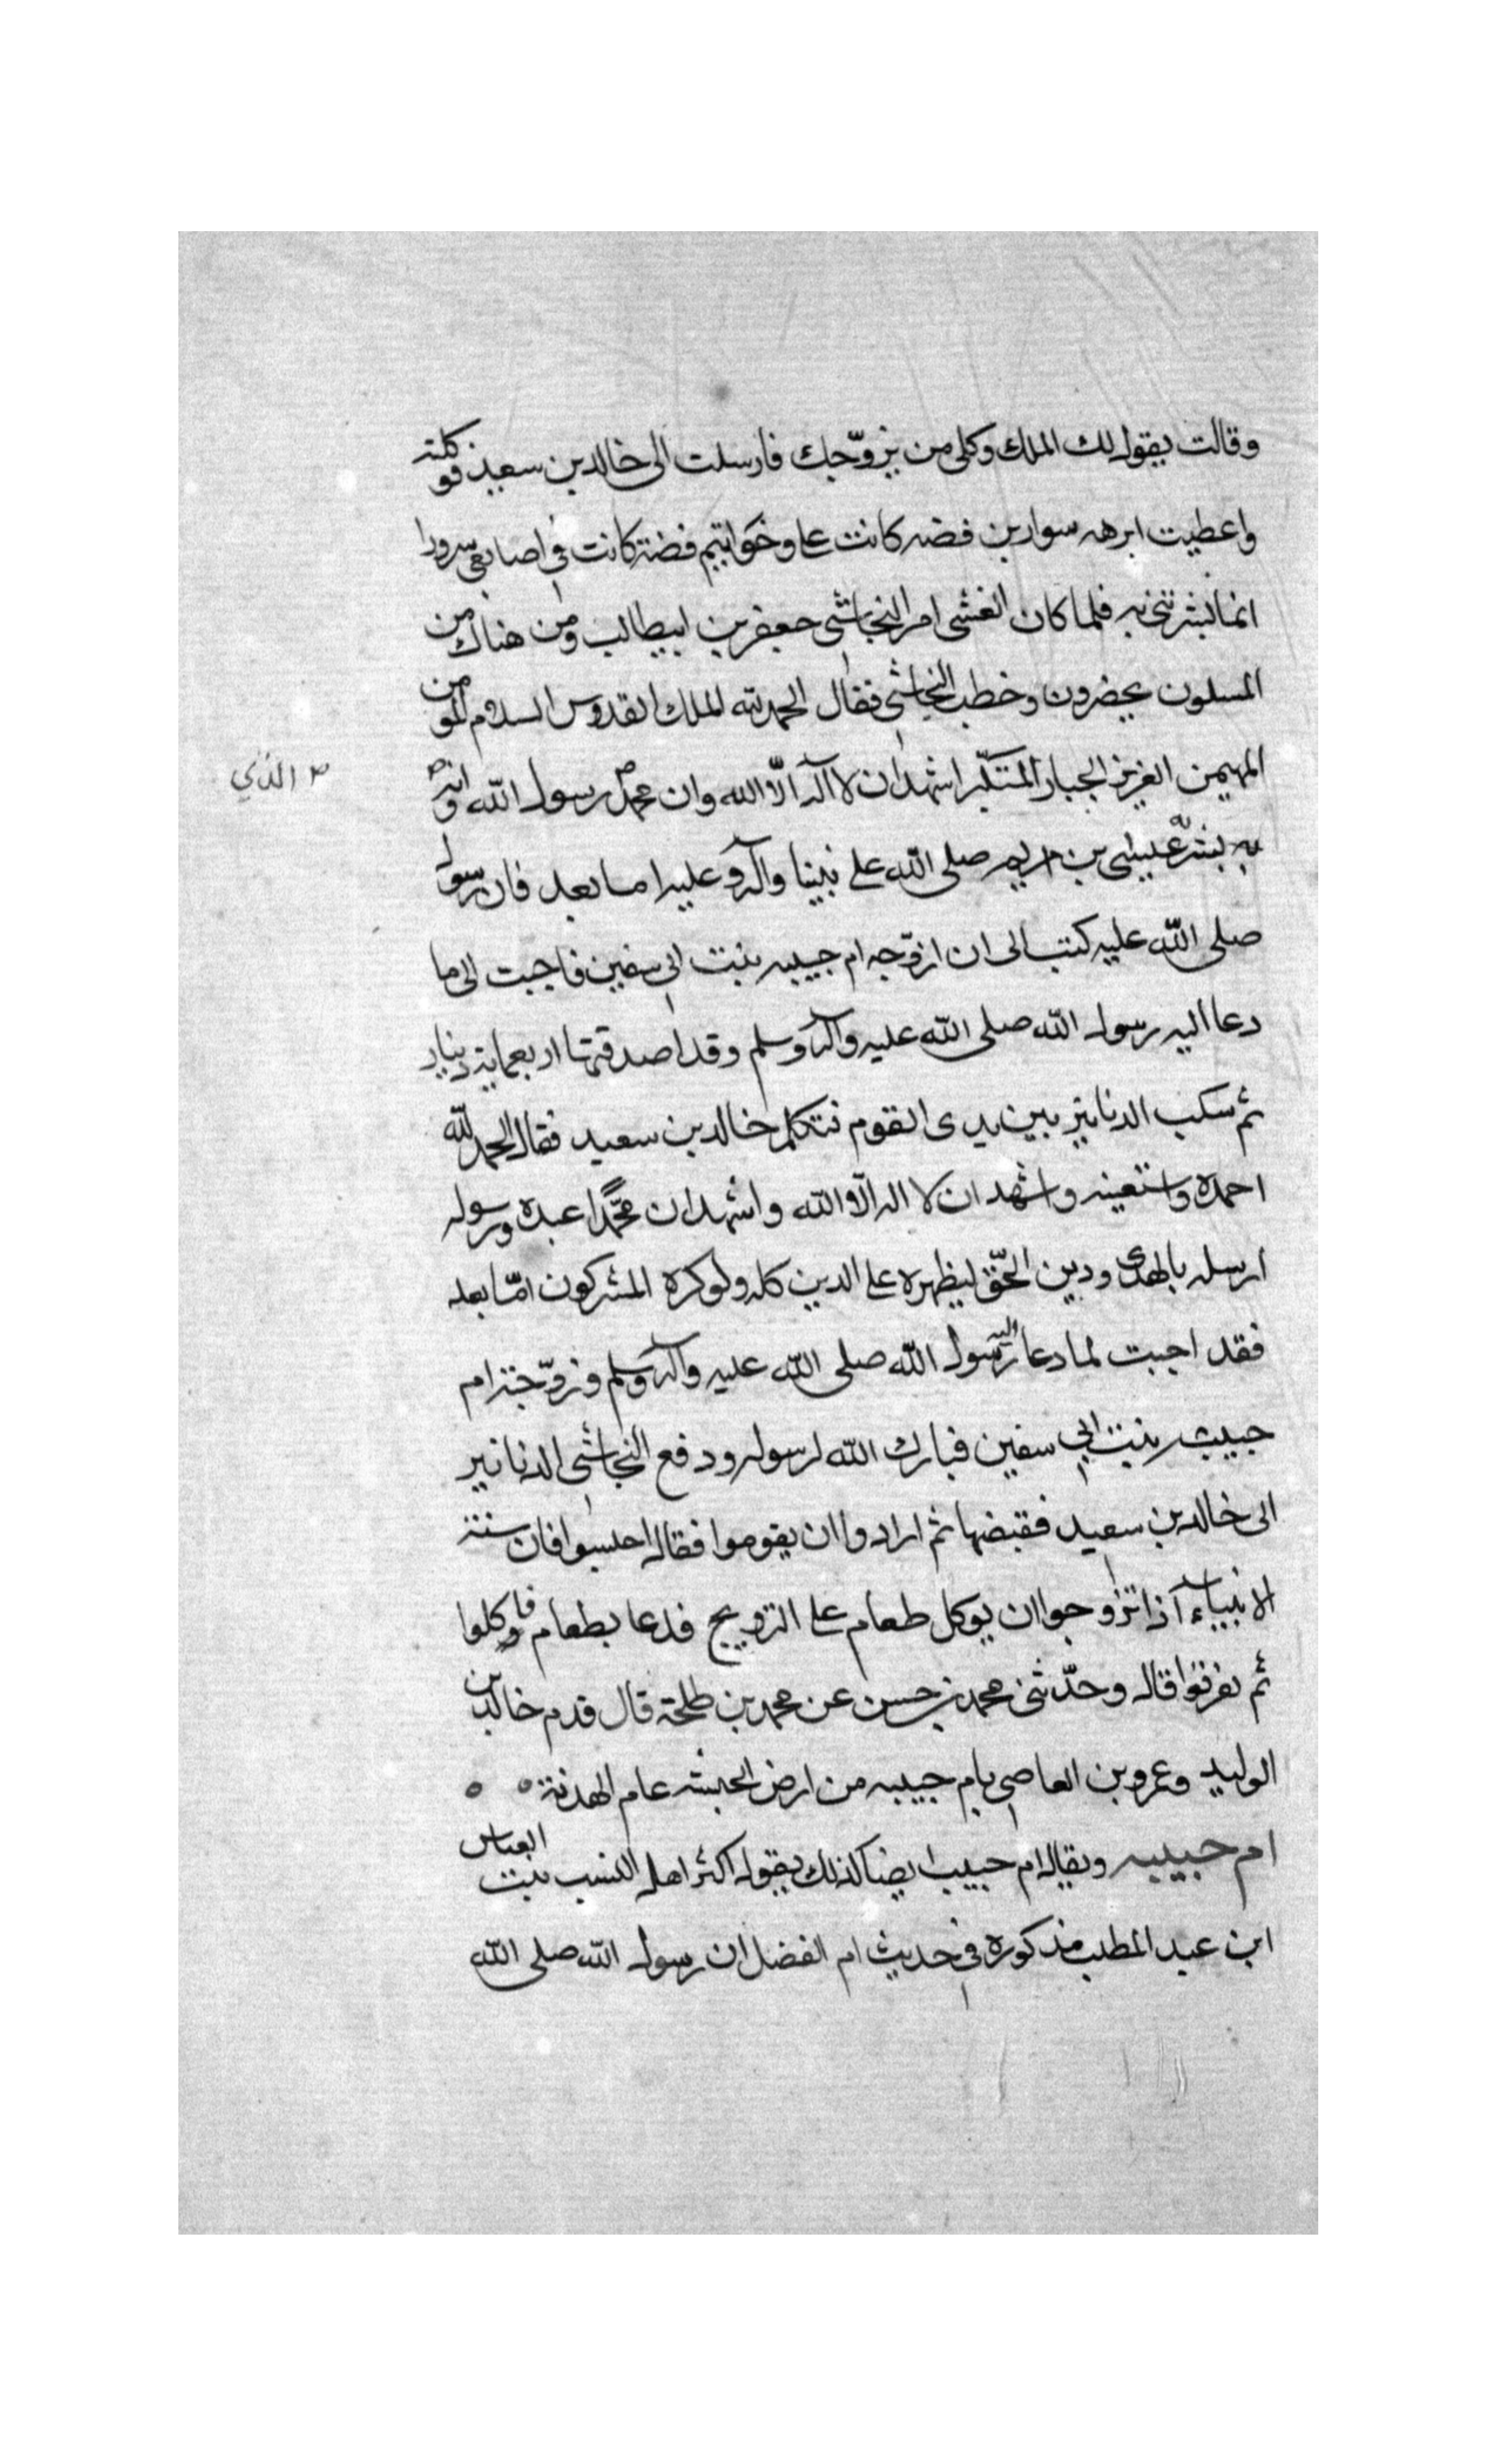 وقالت يقول لك الملك وكلى من يزوّجك فارسلت الى خالد بن سعيد فوكلته
واعطيت ابرهه سوارين فضه كانت على وخواتيم فضة كانت فى اصابعى سرورا
انما بشرتنى به فلما كان العشى امر النجاشى جعفر بن ابيطالب ومن هناك من
المسلمون يحضرون وخطب النجاشى فقال الحمد لله الملك القدوس السلام المومن
المهيمن العزيز الجبار المتكبّر اشهد ان لا آله الّا الله وان محمد رسول الله وانه
الذي
به بشر عيسى بن مريم صلى الله على نبينا وآله وعليه اما بعد فان رسول
صلى الله عليه كتب الى ان ازوّجه ام حبيبه بنت ابى سفين فاجبت الى ما
دعا اليه رسول الله صلى الله عليه وآله وسلم وقد اصدقتها اربعماية دينار
ثم سكب الدنانير بين يدى القوم فتكلم خالد بن سعيد فقال الحمد لله
احمده واستعينه واشهد ان لا اله الّا الله واشهد ان محمّدًا عبده ورسوله
ارسله بالهدى ودين الحقّ ليظهره على الدين كله ولو كره المشركون امّا بعد
فقد اجبت لما دعا اليه رسول الله صلى الله عليه وآله وسلم وزوّجته ام
حبيبه بنت ابي سفين فبارك الله لرسوله ودفع النجاشى الدنانير
الى خالد بن سعيد فقبضها ثم ارادوا ان يقوموا فقال اجلسوا فان سنة
الانبياء آذا تزوجوا ان يوكل طعام على التزويج فدعا بطعام فاوكلوا
ثم تفرقوا قال وحدّثنى محمد بن حسن عن محمد بن طلحة قال قدم خالد بن
الوليد وعمرو بن العاصى بام حبيبه من ارض الحبشه عام الهدنة
ام حبيبه ويقال ام حبيب ايضا كذلك يقول اكثر اهل النسب بنت العباس
ابن عبد المطلب مذكورة فى حديث ام الفضل ان رسول الله صلى الله